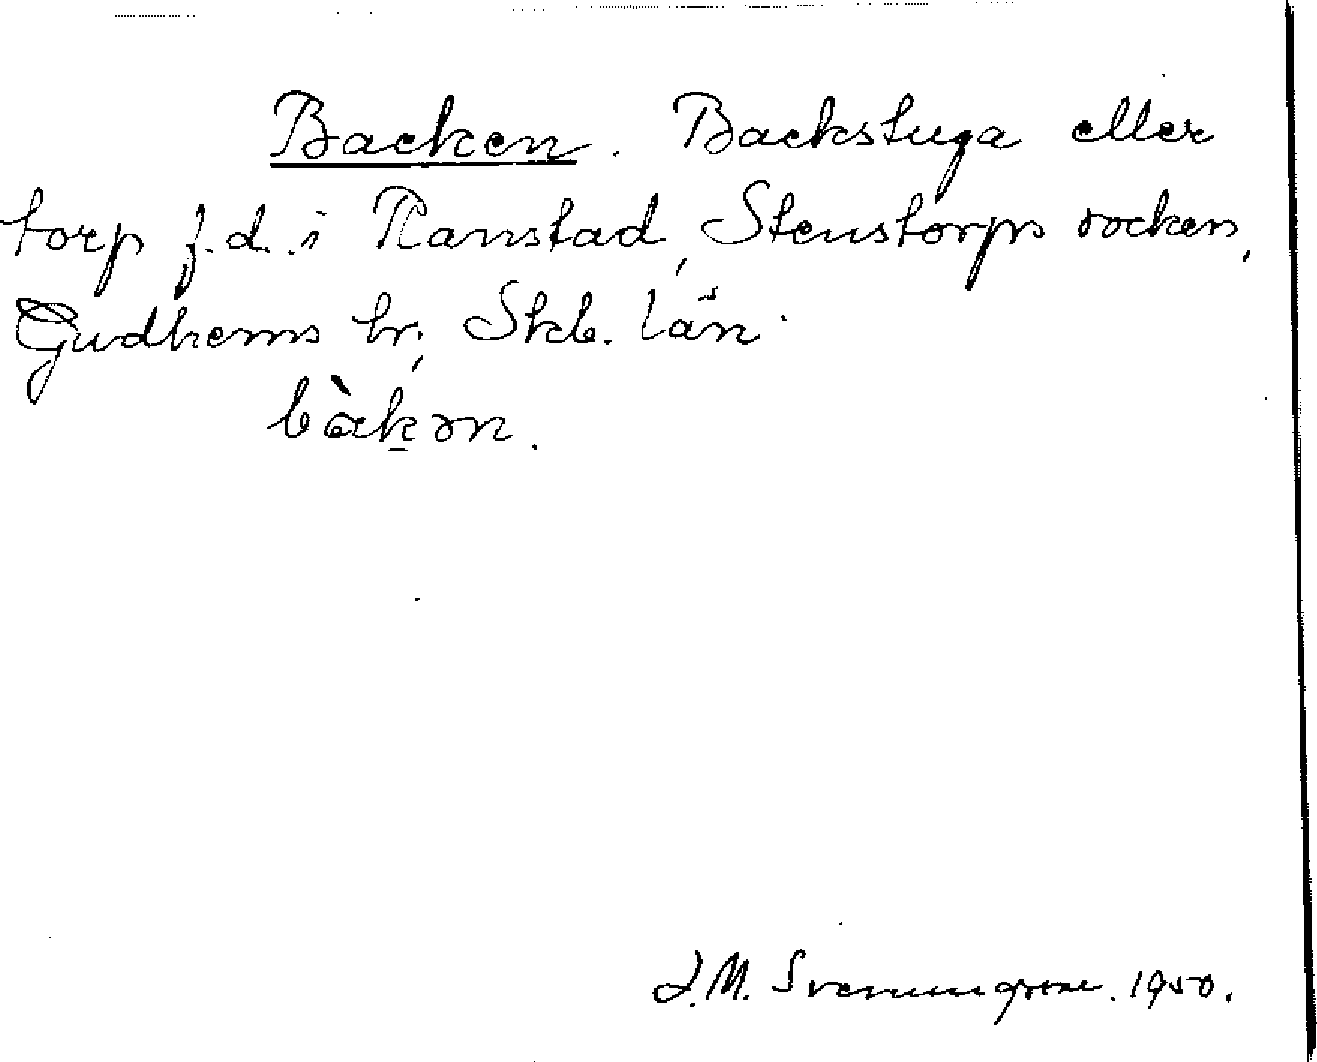 Backen. Backstuga eller
torp f.d. i Ranstad, Stenstorps socken,
Gudhems hr, Skb. län.
bàk̲ən.
J.M. Svenungsson. 1950.